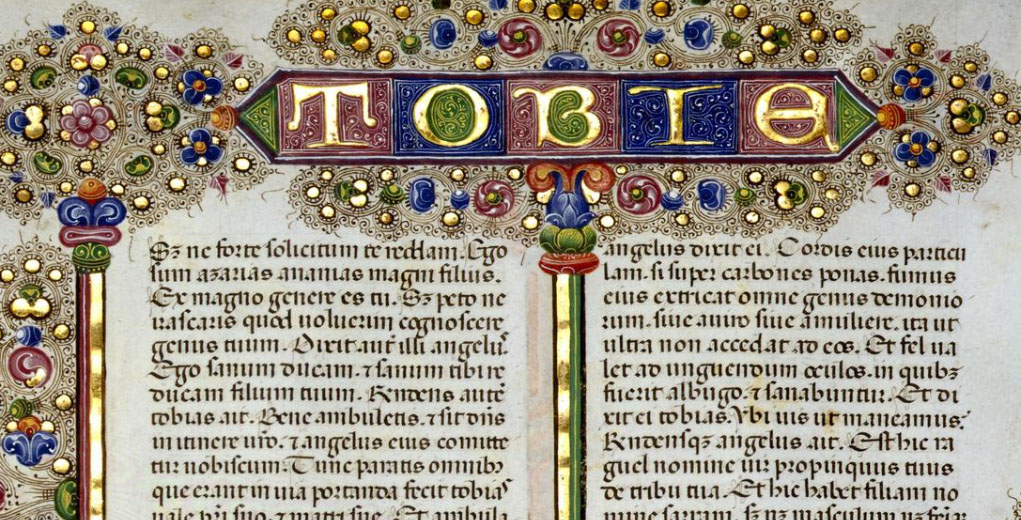 TOBIE
Sz ne forte solicitum te reddam. Ego
sum azarias ananias magni filius.
Ex magno genere es tu. Sz peto ne
irascaris quod uoluerim cognoscere
genus tuum. Dixit aut illi angelus.
Ego sanum ducam. ⁊ sanum tibi re
ducam filium tuum. Rndens aute
tobias ait. Bene ambuletis. ⁊ sit dns
in itinere uro. ⁊ angelus eius comitte
tur uobiscum. Tunc paratis omnibz
que erant in uia portanda fecit tobias
uale pri suo ⁊ matri sue. Et ambula
angelus dixit ei. Cordis eius particu
lam. si super carbones ponas. fumus
eius extricat omne genus demonio
rum. siue a uiro siue a muliere. ita ut
ultra non accedat ad eos. Et fel ua
let ad unguendum oculos. in quibz
fuerit albugo. ⁊ sanabuntur. Et di
xit ei tobias. Vbi uis ut maneamus.
Rndensqz angelus ait. Est hic ra
guel nomine uir propinquus tuus
de tribu tua. Et hic habet filiam no
mine sarram. sz nz masculum nz